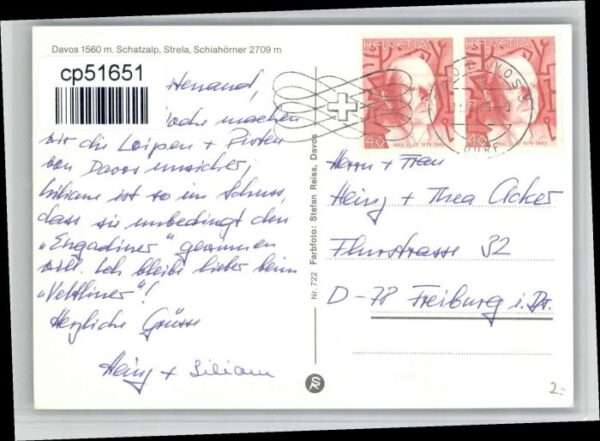 Davos 1560 m. Schatzalp, Strela, Schiahörner 2709 m
cp51651
machen
wir die Loipen + Pisten
von Davos unsicher,
Liliane ist so im Schuss,
dass sie unbedingt den
"Engadiner" gewinnen
will. Ich bleibe lieber beim
"Veltliner"!
Herzliche Grüsse
Heinz + Liliane
Nr. 722 Farbfoto: Stefan Reiss, Davos
HELVETIA
HELVETIA
40
40
DAVOS
DORF
Herrn + Frau
Heinz + Thea Acker
Flurstrasse 32
D-78 Freiburg i. Br.
2.-